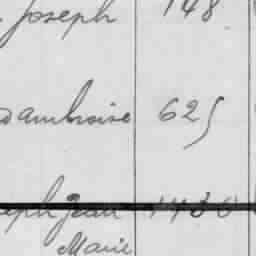 Joseph 148
dambroise 625
eph Jean 1430
Marie